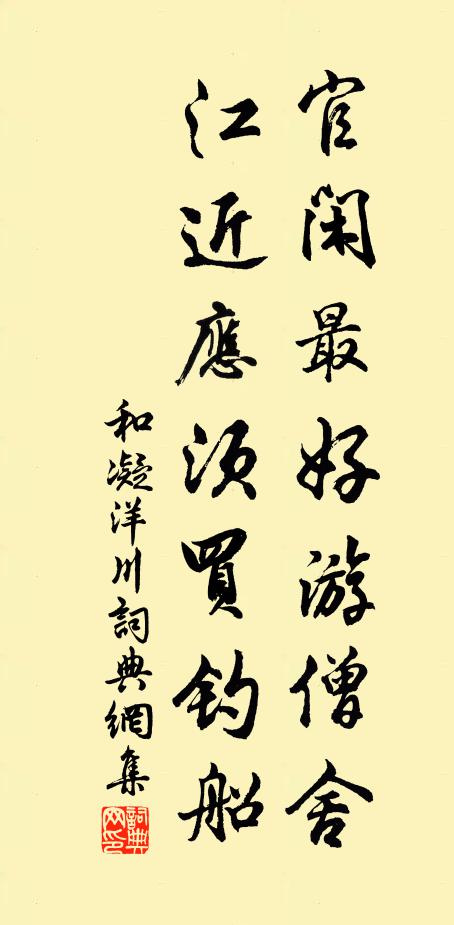 官闲最好游僧舍
江近應須買釣船
和凝洋川詞典網集
詞典
网印